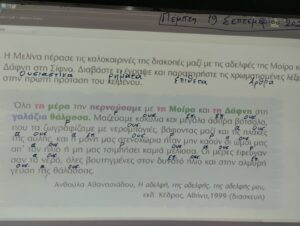 Πέμπτη 19 Σεπτεμβρίου
Η Μελίνα πέρασε τις καλοκαιρινές της διακοπές μαζί με τις αδελφές της Μοίρα κ
Δάφνη στη Σίφνο. Διαβάστε τι έγραψε και παρατηρήστε τις χρωματισμένες λέξ
ουσιαστικά ρήματα επίθετα άρθρα
στην πρώτη πρόταση του κειμένου.
Όλο τη μέρα την περνούσαμε με τη Μοίρα και τη Δάφνη στη
γαλάζια θάλασσα. Μαζεύαμε κοχύλια και μεγάλα άσπρα βότσαλα,
που τα ζωγραφίζαμε με νερομπογιές, βάφοντας μαζί και τις πλάκες
της αυλής, και η μόνη μας στενοχώρια ήταν μην καούν οι ώμοι μας
απ' τον ήλιο ή μη μας τσιμπήσει καμιά μέλισσα. Οι μέρες έφευγαν
σαν το νερό, όλες βουτηγμένες στον δυνατό ήλιο και στην αλμυρή
γεύση της θάλασσας.
Ανθούλα Αθανασιάδου, Η αδελφή, της αδελφής, της αδελφής μου,
εκδ. Κέδρος, Αθήνα, 1999 (διασκευή)